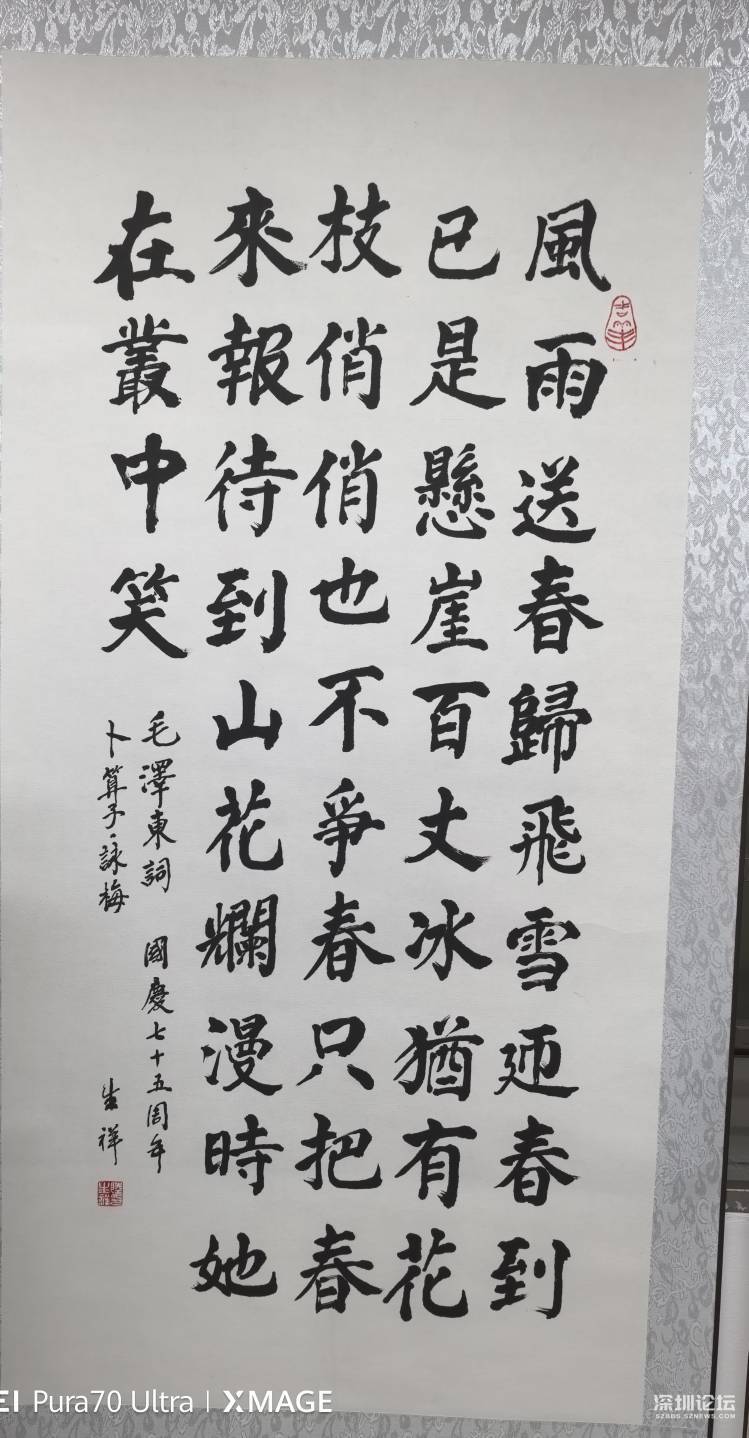 風雨送春歸飛雪迎春到
已是懸崖百丈冰猶有花
枝俏俏也不爭春只把春
來報待到山花爛漫時她
在叢中笑
毛澤東詞 國慶七十五周年
卜算子·詠梅 生祥
EI Pura70 Ultra | XMAGE
深圳论坛
SZBBS.SZNEWS.COM